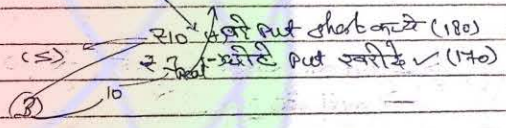 (S) ₹10 की Put short करते (180)
₹7 Put खरीदे ✓ (170)
(B) 10